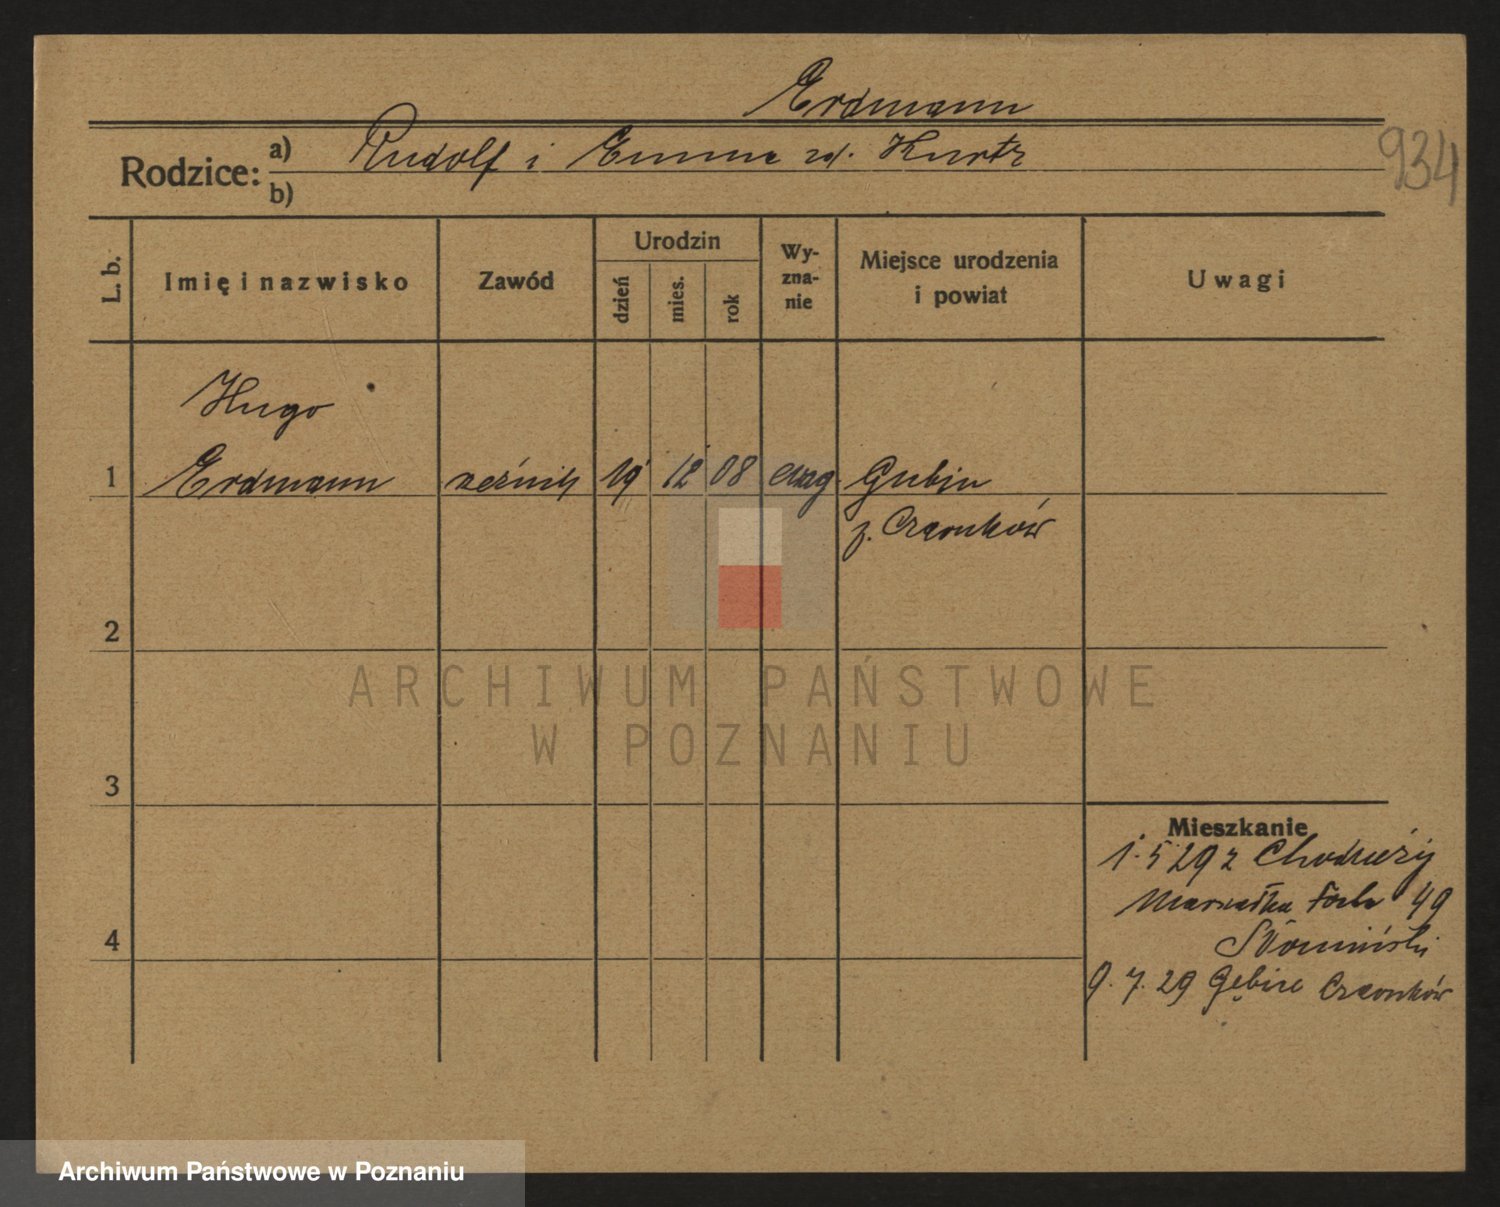 Erdmann
934
Rodzice: a) Rudolf i Emma zd. Kurtz
b)
L. b. Imię i nazwisko Zawód Urodzin dzień mies. rok Wy-zna-nie Miejsce urodzenia i powiat Uwagi
Hugo
1 Erdmann rzeźnik 19 12 08 ewag Gubin
p. Czarnków
2
ARCHIWUM PAŃSTWOWE
W POZNANIU
3
Mieszkanie
1. 5 29 z Chodzieży
Marszałka Focha 49
Słomiński
4
9. 7. 29 Gębice Czarnków
Archiwum Państwowe w Poznaniu